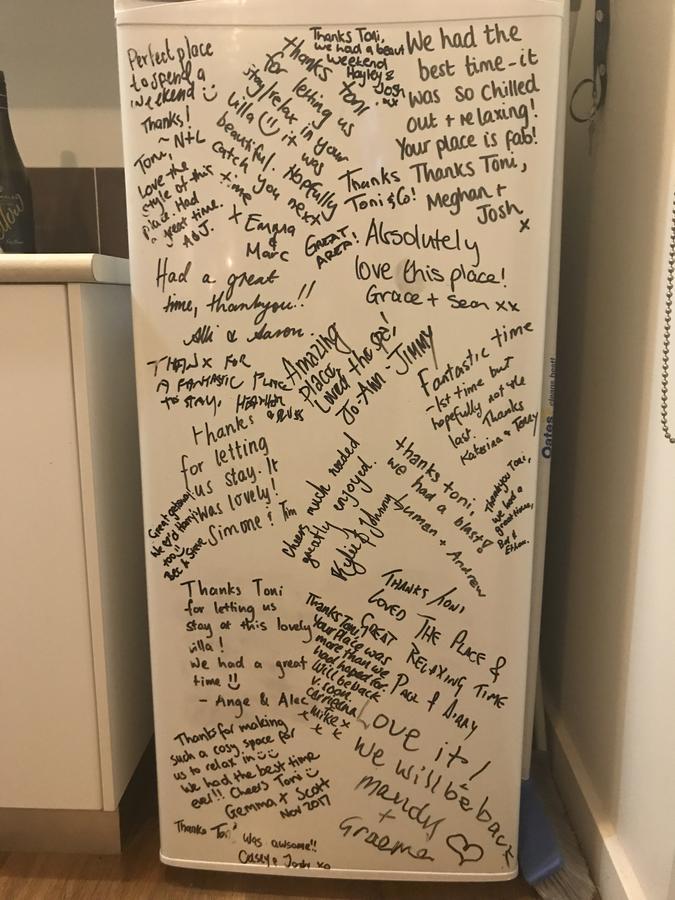 Perfect place
to spend a
weekend
Thanks!
~ N+L
Thanks Toni,
we had a beaut
weekend
Hayley &
Josh
xx
thanks toni
for letting us
stay/relax in your
villa it was
beautiful. Hopefully
catch you next
time xx
x Emma
&
Marc
We had the
best time - it
was so chilled
out + relaxing!
Your place is fab!
Thanks Toni,
Meghan +
Josh
x
Toni,
Love the
style of this
place. Had
a great time.
A & J.
Thanks
Toni & Co!
GREAT
AREA!
Absolutely
love this place!
Grace + Sean xx
Had a great
time, thankyou!!
Alli & Aaron.
THANX FOR
A FANTASTIC PLACE
TO STAY, HEATHER
& RUSS
Amazing
Place,
Loved the spa!
Jo-Ann - JIMMY
Fantastic time
- 1st time but
hopefully not the
last. Thanks
Katerina & Terry
Oates
thanks
for letting
us stay. It
was lovely!
Simone & Tim
Great getaway!
We ♡'d Harry
too!!
Bec & Steve
Cheers, much needed
greatly enjoyed.
Kylie & Johnny
thanks toni,
we had a blast
+ Andrew
Thankyou Toni,
we had a
great time,
Ethan.
Thanks Toni
for letting us
stay at this lovely
villa!
We had a great
time
- Ange & Alec
Thanks Toni,
Your Place was
more than we
had hoped for.
Will be back
v. soon.
Mike x
x x
THANKS TONI
LOVED THE PLACE &
GREAT RELAXING TIME
PAUL &
Thanks for making
such a cosy space for
us to relax in
We had the best time
ever!! Cheers Toni
Gemma + Scott
Nov 2017
Love it!
We will be back
mandy
+
Graeme ♡
Thanks Toni
Was awsome!!
Casey & Josh xo